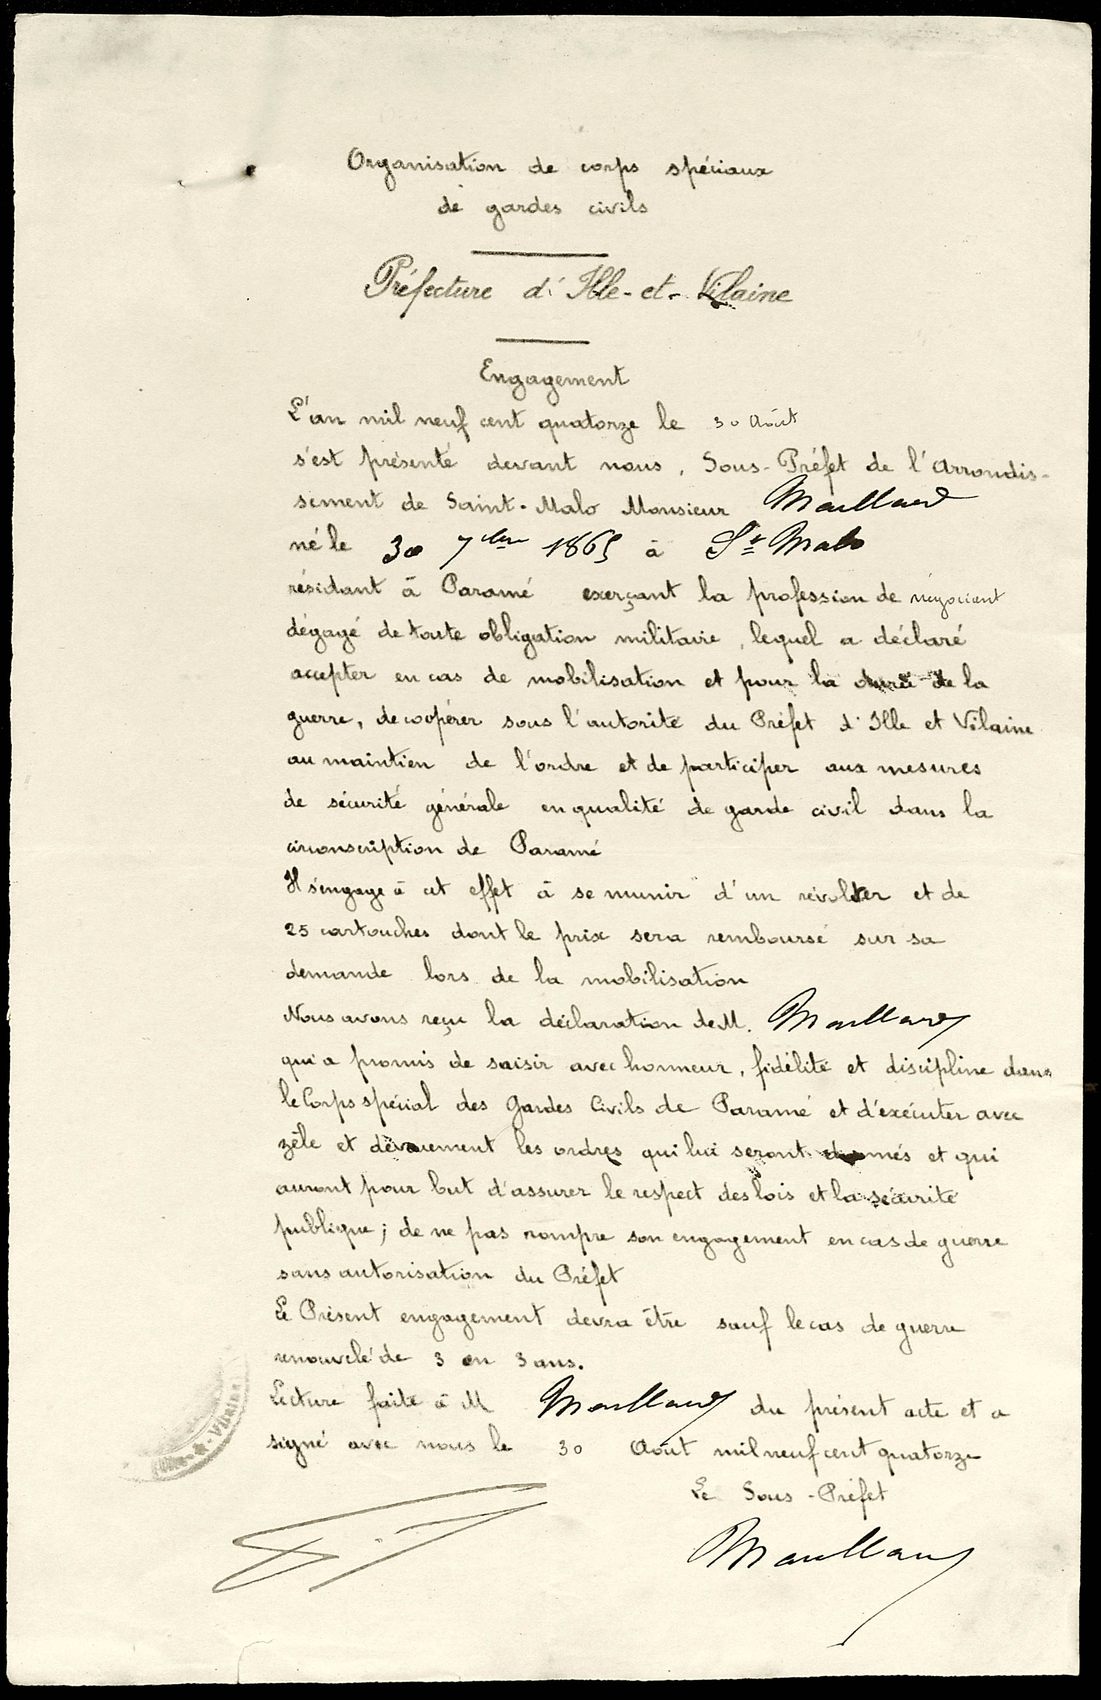 Organisation de corps spéciaux
de gardes civils
Préfecture d'Ille-et-Vilaine
Engagement
L'an mil neuf cent quatorze le 30 Août
s'est présenté devant nous, Sous-Préfet de l'Arrondis-
sement de Saint-Malo Monsieur Maillard
né le 30 7bre 1865 à St Malo
résidant à Paramé exerçant la profession de négociant
dégagé de toute obligation militaire, lequel a déclaré
accepter en cas de mobilisation et pour la durée de la
guerre, de coopérer sous l'autorité du Préfet d'Ille et Vilaine
au maintien de l'ordre et de participer aux mesures
de sécurité générale en qualité de garde civil dans la
circonscription de Paramé
Il s'engage à cet effet à se munir d'un révolver et de
25 cartouches dont le prix sera remboursé sur sa
demande lors de la mobilisation
Nous avons reçu la déclaration de M. Maillard
qui a promis de saisir avec honneur, fidélité et discipline dans
le Corps spécial des Gardes Civils de Paramé et d'exécuter avec
zèle et dévouement les ordres qui lui seront donnés et qui
auront pour but d'assurer le respect des lois et la sécurité
publique; de ne pas rompre son engagement en cas de guerre
sans autorisation du Préfet
Le Présent engagement devra être sauf le cas de guerre
renouvelé de 3 en 3 ans.
Lecture faite à M Maillard du présent acte et a
signé avec nous le 30 Août mil neuf cent quatorze
Le Sous-Préfet
Maillard